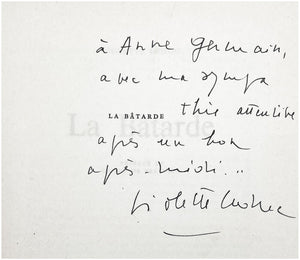 à Anne Germain,
avec ma sympa
thie attentive
LA BÂTARDE
La Bâtarde
après un bon
après-midi..
Violette Leduc